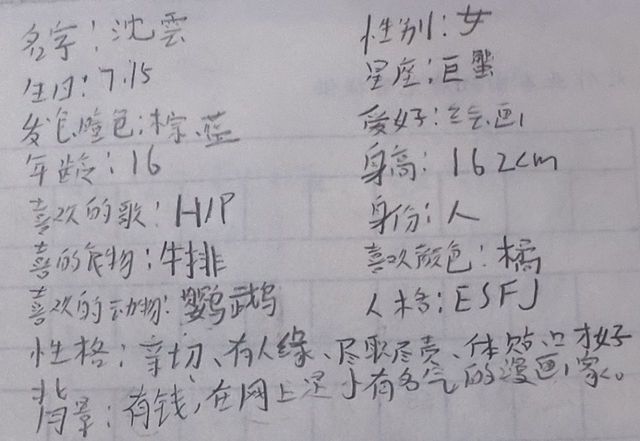 名字：沈雲 性别：女
生日：7.15 星座：巨蟹
发色瞳色：棕、蓝 爱好：绘画
年龄：16 身高：162cm
喜欢的歌：HIP 身份：人
喜的食物：牛排 喜欢颜色：橘
喜欢的动物：鹦鹉 人格：ESFJ
性格：亲切、有人缘、尽职尽责、体贴、口才好
背景：有钱，在网上是小有名气的漫画家。